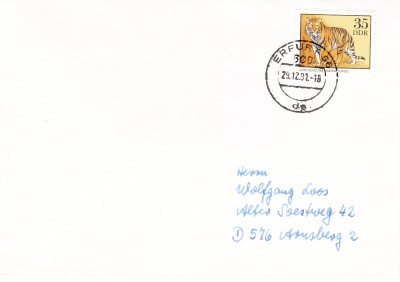 35
DDR
ERFURT 66
500
29.12.81.-18
de
Herrn
Wolfgang Loos
Alter Soestweg 42
D 576 Arnsberg 2